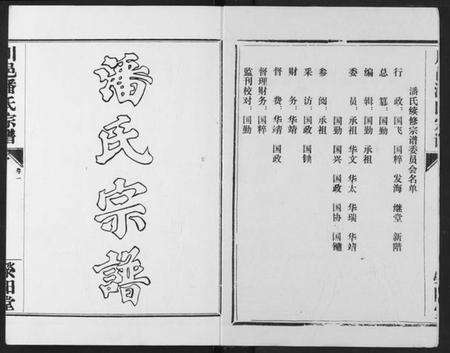 潘氏续修宗谱委员会名单
行政：国飞 国粹 发海 继堂 新阶
总篡：国勤
编辑：国勤 承祖
委员：承祖 华文 华太 华瑞 华靖
国勤 国兴 国政 国协 国
参阅：承祖
采访：国政 国
财务：华靖
督费：华靖 国政
督理财务：国粹
监刊校对：国勤
潘氏宗譜
邑潘氏宗譜
卷一